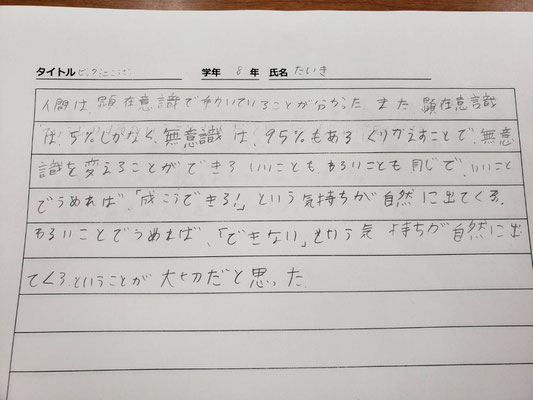 タイトル 学年 8 年 氏名 たいき
人間は、顕在意識で動いていることが分かった また 顕在意識
は、5%しかなく、無意識は、95%もある くりかえすことで、無意
識を変えることができる いいこともわるいことも同じで、いいこと
でうめれば、「成こうできる!」という気持ちが自然に出てくる。
わるいことでうめれば、「できない」という気持ちが自然に出
てくるということが大切だと思った